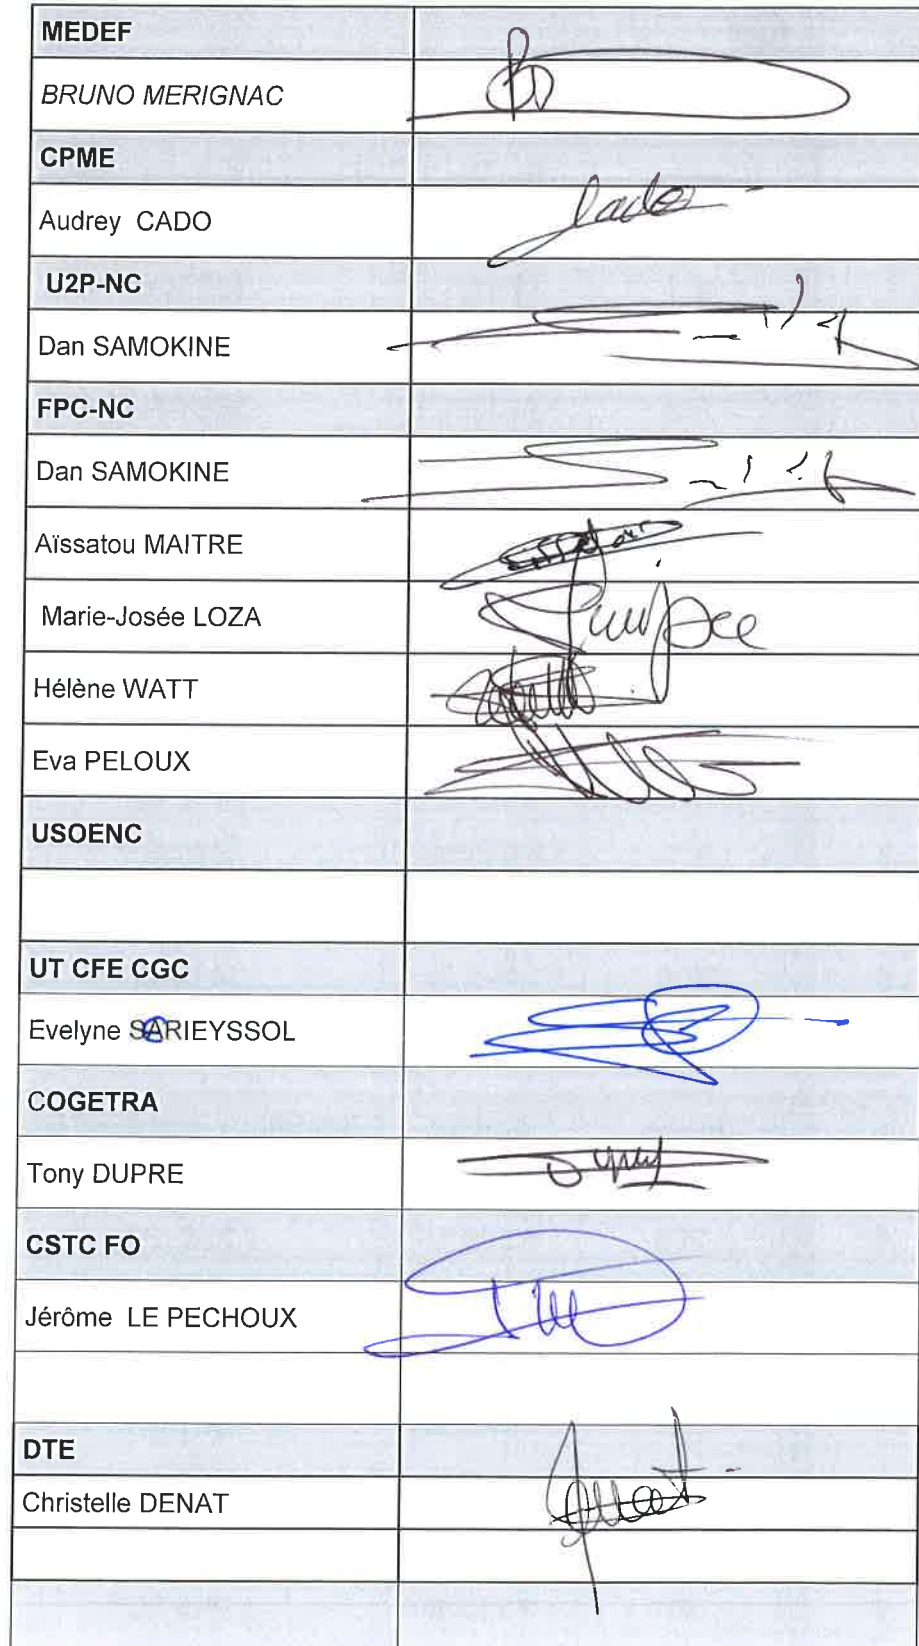 MEDEF
BRUNO MERIGNAC
CPME
Audrey CADO
Cado
U2P-NC
Dan SAMOKINE
FPC-NC
Dan SAMOKINE
Aïssatou MAITRE
Marie-Josée LOZA
Hélène WATT
Eva PELOUX
USOENC
UT CFE CGC
Evelyne SARIEYSSOL
COGETRA
Tony DUPRE
CSTC FO
Jérôme LE PECHOUX
DTE
Christelle DENAT